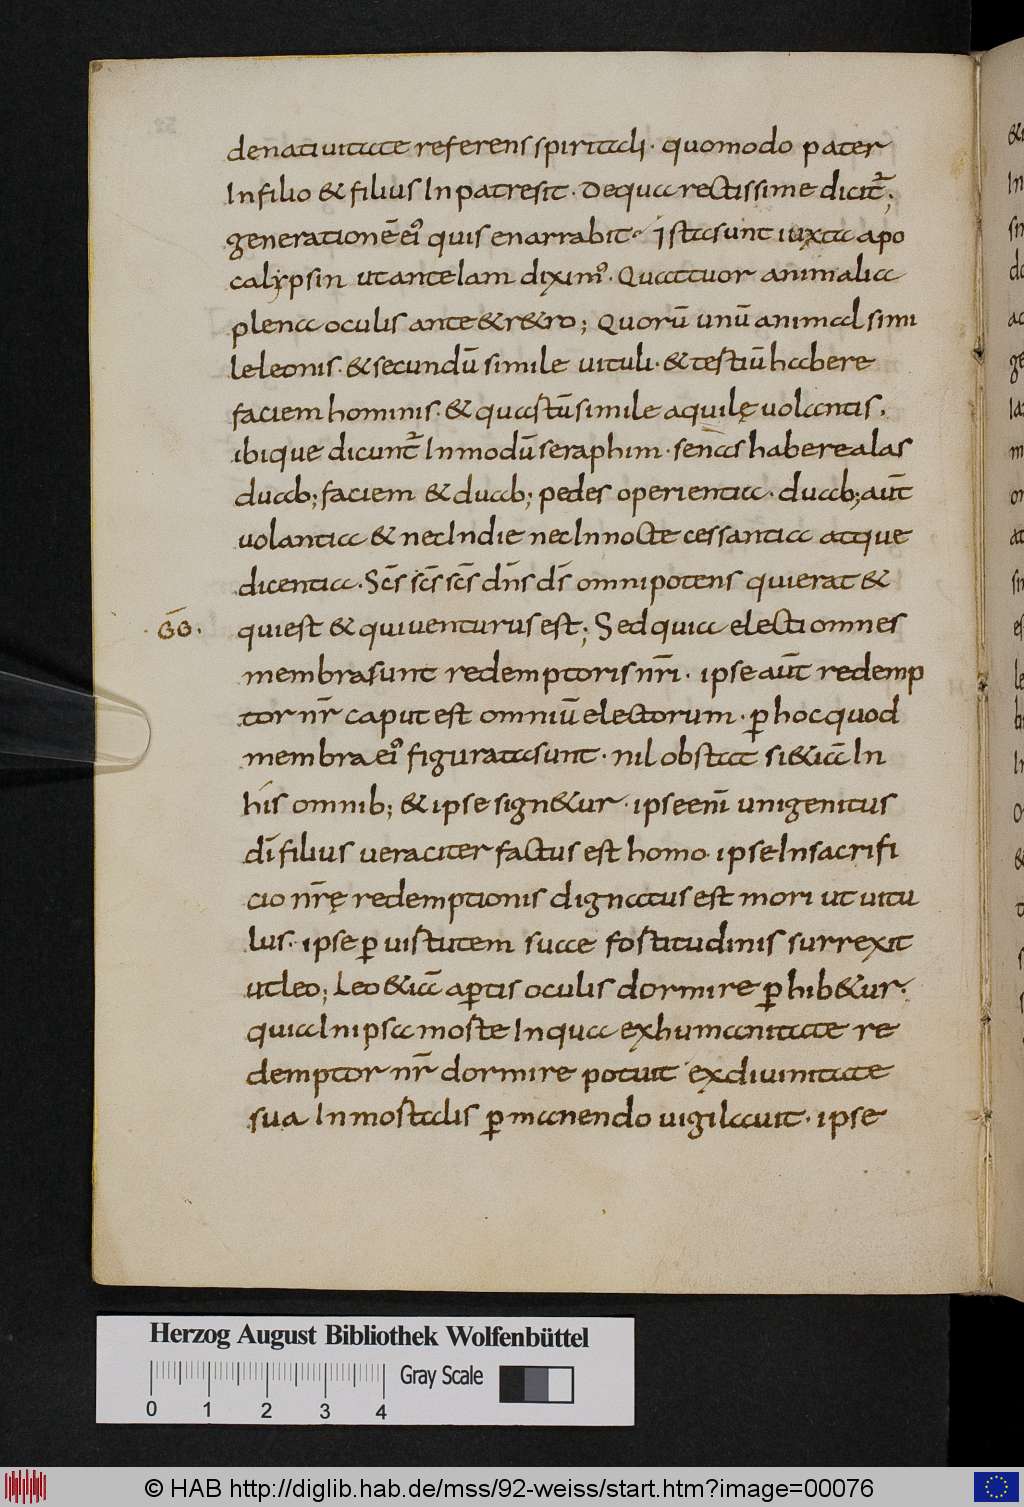 denatiuitate referens spiritali· quomodo pater
In filio & filius Inpatresit· Dequa rectissime dicit̄;
generationē ei᾿ quis enarrabit· Ista sunt iuxta apo
calypsin ut ante Iam dixim᾿· Quattuor animalia
plena oculis ante & r&ro; Quorū unū animal simi
le leonis· & secundū simile uituli· & tertiū habere
faciem hominis· & quartū simile aquilę uolantis,
ibique dicunt̄ Inmodū seraphim· senas habere alas
duab; faciem & duab; pedes operientia· duab; aūt
uolantia & nec Indie nec Innocte cessantia atque
dicentia· Sc̄s sc̄s sc̄s dn̄s ds̄ omnipotens qui erat &
· GḠ· qui est & qui uenturus est; Sed quia electi omnes
membra sunt redemptoris nr̄i· ipse aūt redemp
tor nr̄ caput est omniū electorum· p̄ hoc quod
membra ei᾿ figurata sunt· nil obstat si &iā In
his omnib; & ipse sign&ur· ipse eni̅ unigenitus
dī filius ueraciter factus est homo· ipse Insacrifi
cio nr̄ę redemptionis dignatus est mori ut uitu
lus· ipse p̄ uirtutem suae fortitudinis surrexit
ut leo; Leo &iā ap̄tis oculis dormire p̄hib&ur·
quia Inipsa morte Inqua ex humanitate re
demptor nr̄ dormire potuit ex diuinitate
sua Inmortalis p̄manendo uigilauit· ipse
Herzog August Bibliothek Wolfenbüttel
Gray Scale
0 1 2 3 4
© HAB http://diglib.hab.de/mss/92-weiss/start.htm?image=00076